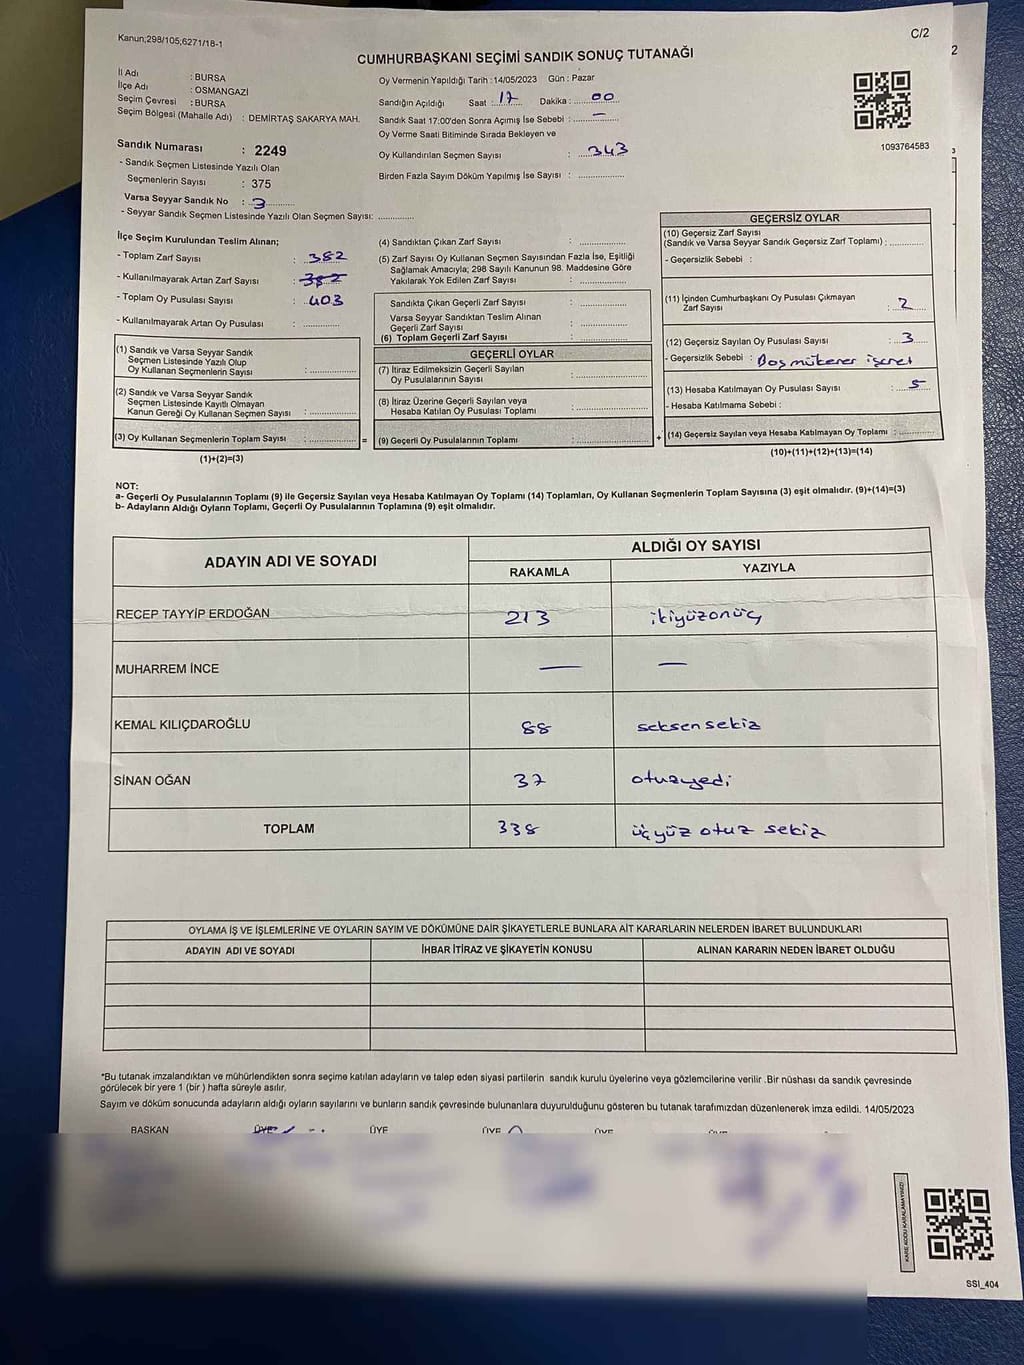 Kanun;298/105;6271/18-1
C/2
CUMHURBAŞKANI SEÇİMİ SANDIK SONUÇ TUTANAĞI
İl Adı : BURSA
İlçe Adı : OSMANGAZİ
Seçim Çevresi : BURSA
Seçim Bölgesi (Mahalle Adı) : DEMİRTAŞ SAKARYA MAH.
Sandık Numarası : 2249
- Sandık Seçmen Listesinde Yazılı Olan
Seçmenlerin Sayısı : 375
Varsa Seyyar Sandık No : 3
- Seyyar Sandık Seçmen Listesinde Yazılı Olan Seçmen Sayısı:
Oy Vermenin Yapıldığı Tarih :14/05/2023 Gün : Pazar
Sandığın Açıldığı Saat : 17 Dakika : 00
Sandık Saat 17:00'den Sonra Açımış İse Sebebi : —
Oy Verme Saati Bitiminde Sırada Bekleyen ve
Oy Kullandırılan Seçmen Sayısı : 343
Birden Fazla Sayım Döküm Yapılmış İse Sayısı :
1093764583
İlçe Seçim Kurulundan Teslim Alınan;
- Toplam Zarf Sayısı : 382
- Kullanılmayarak Artan Zarf Sayısı : 382
- Toplam Oy Pusulası Sayısı : 403
- Kullanılmayarak Artan Oy Pusulası :
(1) Sandık ve Varsa Seyyar Sandık
Seçmen Listesinde Yazılı Olup
Oy Kullanan Seçmenlerin Sayısı :
(2) Sandık ve Varsa Seyyar Sandık
Seçmen Listesinde Kayıtlı Olmayan
Kanun Gereği Oy Kullanan Seçmen Sayısı :
(3) Oy Kullanan Seçmenlerin Toplam Sayısı : =
(1)+(2)=(3)
(4) Sandıktan Çıkan Zarf Sayısı :
(5) Zarf Sayısı Oy Kullanan Seçmen Sayısından Fazla İse, Eşitliği
Sağlamak Amacıyla; 298 Sayılı Kanunun 98. Maddesine Göre
Yakılarak Yok Edilen Zarf Sayısı :
Sandıkta Çıkan Geçerli Zarf Sayısı :
Varsa Seyyar Sandıktan Teslim Alınan
Geçerli Zarf Sayısı :
(6) Toplam Geçerli Zarf Sayısı :
GEÇERLİ OYLAR
(7) İtiraz Edilmeksizin Geçerli Sayılan
Oy Pusulalarının Sayısı :
(8) İtiraz Üzerine Geçerli Sayılan veya
Hesaba Katılan Oy Pusulası Toplamı :
(9) Geçerli Oy Pusulalarının Toplamı : +
GEÇERSİZ OYLAR
(10) Geçersiz Zarf Sayısı
(Sandık ve Varsa Seyyar Sandık Geçersiz Zarf Toplamı) :
- Geçersizlik Sebebi :
(11) İçinden Cumhurbaşkanı Oy Pusulası Çıkmayan
Zarf Sayısı : 2
(12) Geçersiz Sayılan Oy Pusulası Sayısı : 3
- Geçersizlik Sebebi : Boş mükerer işaret
(13) Hesaba Katılmayan Oy Pusulası Sayısı : 5
- Hesaba Katılmama Sebebi :
(14) Geçersiz Sayılan veya Hesaba Katılmayan Oy Toplamı :
(10)+(11)+(12)+(13)=(14)
NOT:
a- Geçerli Oy Pusulalarının Toplamı (9) ile Geçersiz Sayılan veya Hesaba Katılmayan Oy Toplamı (14) Toplamları, Oy Kullanan Seçmenlerin Toplam Sayısına (3) eşit olmalıdır. (9)+(14)=(3)
b- Adayların Aldığı Oyların Toplamı, Geçerli Oy Pusulalarının Toplamına (9) eşit olmalıdır.
ADAYIN ADI VE SOYADI
ALDIĞI OY SAYISI
RAKAMLA YAZIYLA
RECEP TAYYİP ERDOĞAN 213 ikiyüzonüç
MUHARREM İNCE — —
KEMAL KILIÇDAROĞLU 88 seksensekiz
SİNAN OĞAN 37 otuzyedi
TOPLAM 338 üçyüz otuz sekiz
OYLAMA İŞ VE İŞLEMLERİNE VE OYLARIN SAYIM VE DÖKÜMÜNE DAİR ŞİKAYETLERLE BUNLARA AİT KARARLARIN NELERDEN İBARET BULUNDUKLARI
ADAYIN ADI VE SOYADI İHBAR İTİRAZ VE ŞİKAYETİN KONUSU ALINAN KARARIN NEDEN İBARET OLDUĞU
*Bu tutanak imzalandıktan ve mühürlendikten sonra seçime katılan adayların ve talep eden siyasi partilerin sandık kurulu üyelerine veya gözlemcilerine verilir .Bir nüshası da sandık çevresinde
görülecek bir yere 1 (bir ) hafta süreyle asılır.
Sayım ve döküm sonucunda adayların aldığı oyların sayılarını ve bunların sandık çevresinde bulunanlara duyurulduğunu gösteren bu tutanak tarafımızdan düzenlenerek imza edildi. 14/05/2023
BAŞKAN ÜYE ÜYE ÜYE ÜYE
KARE KODU KARALAMAYINIZ!
SSI_404